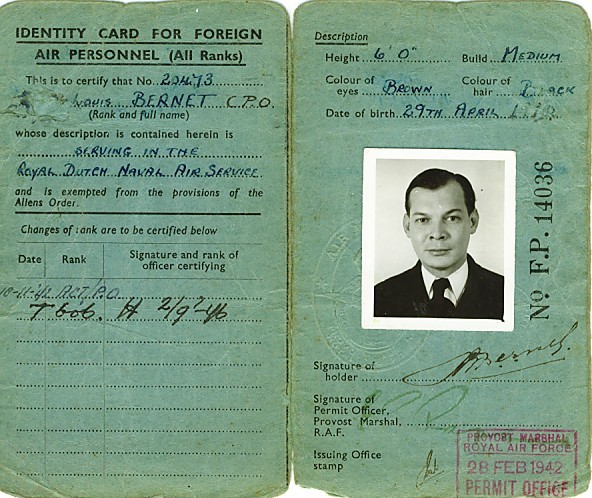 IDENTITY CARD FOR FOREIGN
AIR PERSONNEL (All Ranks)
This is to certify that No. 20473
Louis BERNET C.P.O.
(Rank and full name)
whose description is contained herein is
SERVING IN THE
ROYAL DUTCH NAVAL AIR SERVICE
and is exempted from the provisions of the
Aliens Order.
Changes of rank are to be certified below
Date Rank Signature and rank of officer certifying
10-11-42 ACT. P.O.
Description
Height 6' 0" Build MEDIUM
Colour of eyes BROWN Colour of hair BLACK
Date of birth 29TH APRIL
No F.P. 14036
Signature of
holder Bernet
Signature of
Permit Officer,
Provost Marshal,
R.A.F.
Issuing Office
stamp
PROVOST MARSHAL
ROYAL AIR FORCE
28 FEB 1942
PERMIT OFFICE